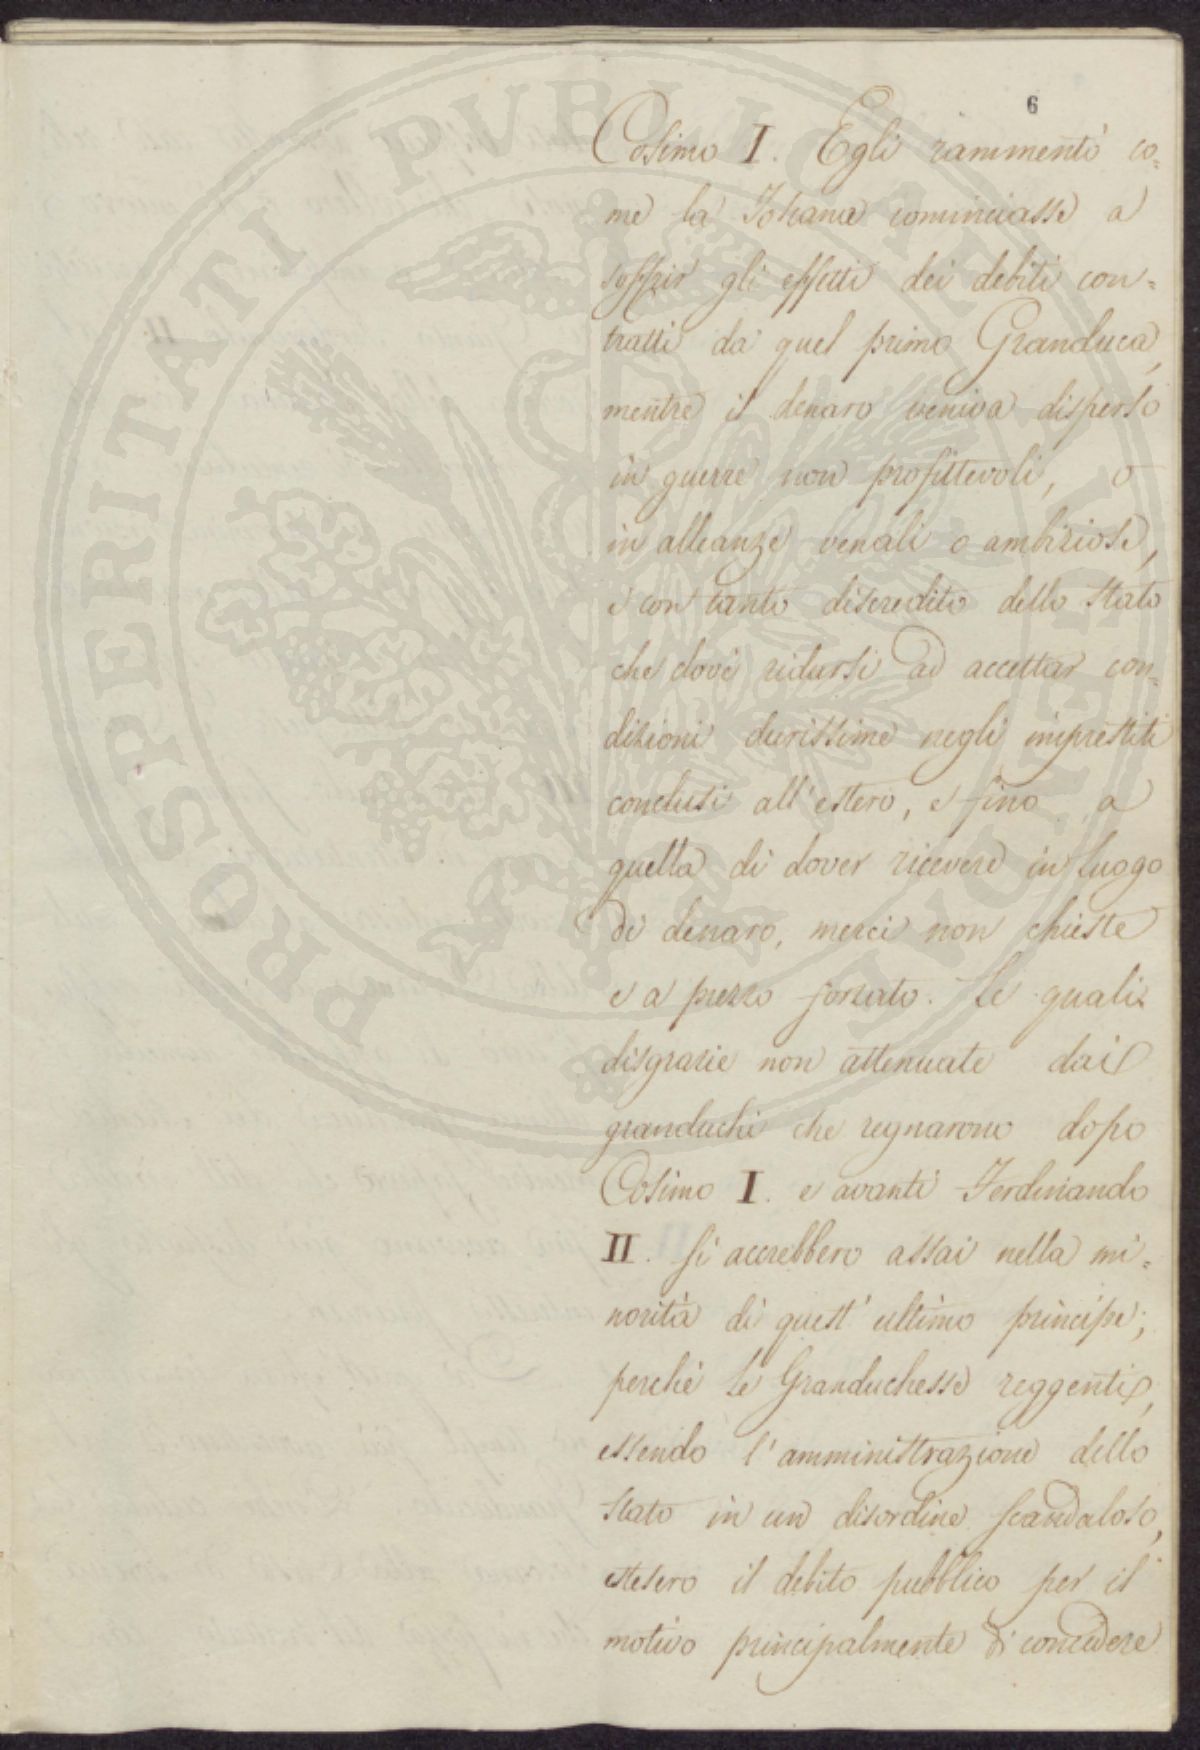 6
Cosimo I. Egli rammentò co=
me la Toscana cominciasse a
soffrir gli effetti dei debiti con=
tratti da quel primo Granduca,
mentre il denaro veniva disperso
in guerre non profittevoli, o
in alleanze venali o ambiziose,
e con tanto discredito dello Stato
che dovè ridursi ad accettar con=
dizioni durissime negli imprestiti
conclusi all'estero, e fino a
quella di dover ricevere in luogo
di denaro, merci non chieste
e a prezzo forzato. Le quali
disgrazie non attenuate dai
granduchi che regnarono dopo
Cosimo I. e avanti Ferdinando
II. si accrebbero assai nella mi=
norità di quest'ultimo principe;
perchè le Granduchesse reggenti,
essendo l'amministrazione dello
Stato in un disordine scandaloso,
estesero il debito pubblico per il
motivo principalmente di concedere
PROSPERITATI PVBLICAE